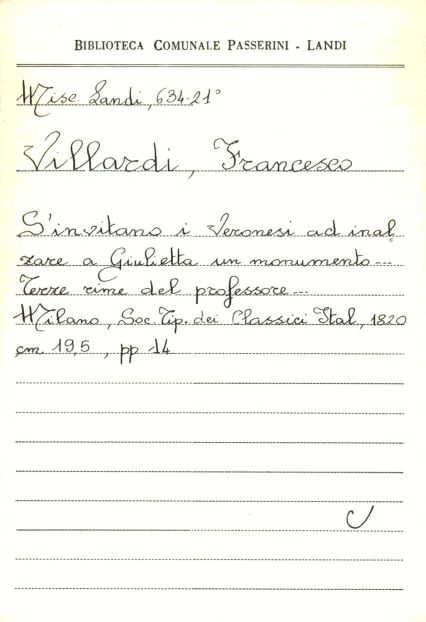 BIBLIOTECA COMUNALE PASSERINI - LANDI
Misc. Landi, 634-21°
Villardi, Francesco
S'invitano i Veronesi ad inal
zare a Giulietta un monumento---
Terze rime del professore---
Milano, Soc. Tip. dei Classici Ital, 1820
cm 19,5, pp 14